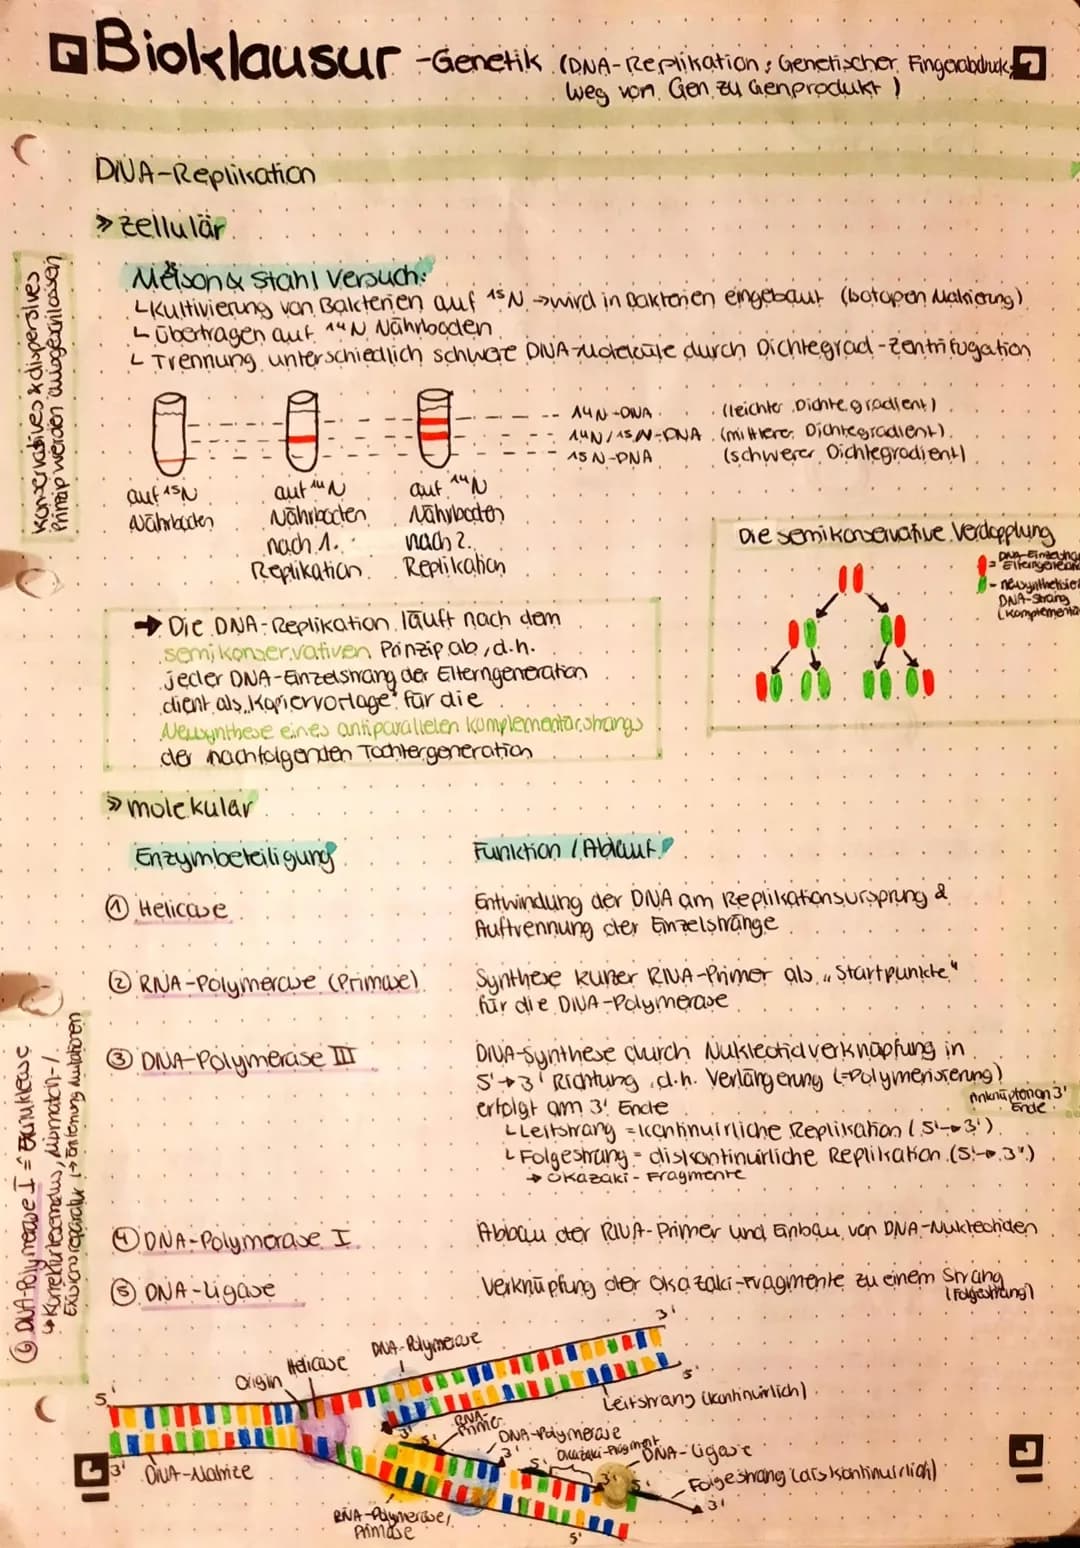 Bioklausur -Genetik (DNA-Replikation; Genetischer Fingerabdruck,
Weg von Gen zu Genprodukt)
DNA-Replikation
» zellulär
Konservatives & dispersives
Prinzip werden ausgeschlossen
Melson & Stahl Versuch:
↳ Kultivierung von Bakterien auf ¹⁵N → wird in Bakterien eingebaut (Isotopen Makierung)
↳ Übertragen auf ¹⁴N Nährboden
↳ Trennung unterschiedlich schwere DNA-Moleküle durch Dichtegrad-Zentrifugation
14N-DNA (leichter Dichtegradient)
14N/15N-DNA (mittlerer Dichtegradient)
15N-DNA (schwerer Dichtegradient)
auf ¹⁵N
Nährboden
auf ¹⁴N
Nährboden
nach 1.
Replikation
auf ¹⁴N
Nährboden
nach 2.
Replikation
Die semikonservative Verdopplung
= DNA-Einzelstrang
Elterngeneration
= neusynthetisier
DNA-Strang
(komplementär
→ Die DNA-Replikation läuft nach dem
semikonservativen Prinzip ab, d.h.
jeder DNA-Einzelstrang der Elterngeneration
dient als „Kopiervorlage" für die
Neusynthese eines antiparallelen Komplementärstrangs
der nachfolgenden Tochtergeneration
» molekular
Enzymbeteiligung Funktion / Ablauf
① Helicase
Entwindung der DNA am Replikationsursprung &
Auftrennung der Einzelstränge
② RNA-Polymerase (Primase)
Synthese kurzer RNA-Primer als „Startpunkte"
für die DNA-Polymerase
③ DNA-Polymerase III
DNA-Synthese durch Nukleotidverknüpfung in
5'→3' Richtung, d.h. Verlängerung (=Polymerisierung)
erfolgt am 3' Ende
Anknüpfen an 3'
Ende
↳ Leitstrang = kontinuirliche Replikation (5'→3')
↳ Folgestrang = diskontinuirliche Replikation (5'→3')
→ Okazaki-Fragmente
④ DNA-Polymerase I
Abbau der RNA-Primer und Einbau von DNA-Nukleotiden
⑤ DNA-Ligase
Verknüpfung der Okazaki-Fragmente zu einem Strang
(Folgestrang)
⑥ DNA-Polymerase I = Exonuklease
↳ Korrekturlesemodus, Mismatch-/
Exzisionsreparatur (→ Entfernung Mutationen
DNA-Polymerase
Helicase
Origin
3'
5'
5'
Leitstrang (kontinuirlich)
RNA-
Primer
3'
5'
DNA-Polymerase
3'
Okazaki-Fragment
5'
DNA-Ligase
3'
DNA-Matrize
3'
5'
Folgestrang (diskontinuirlich)
3'
RNA-Polymerase/
Primase
5'